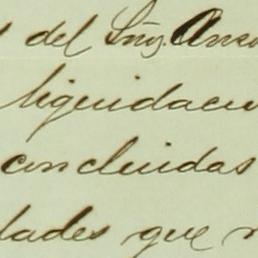 del Sñr. Anso
liquidacio
concluidas
dades que